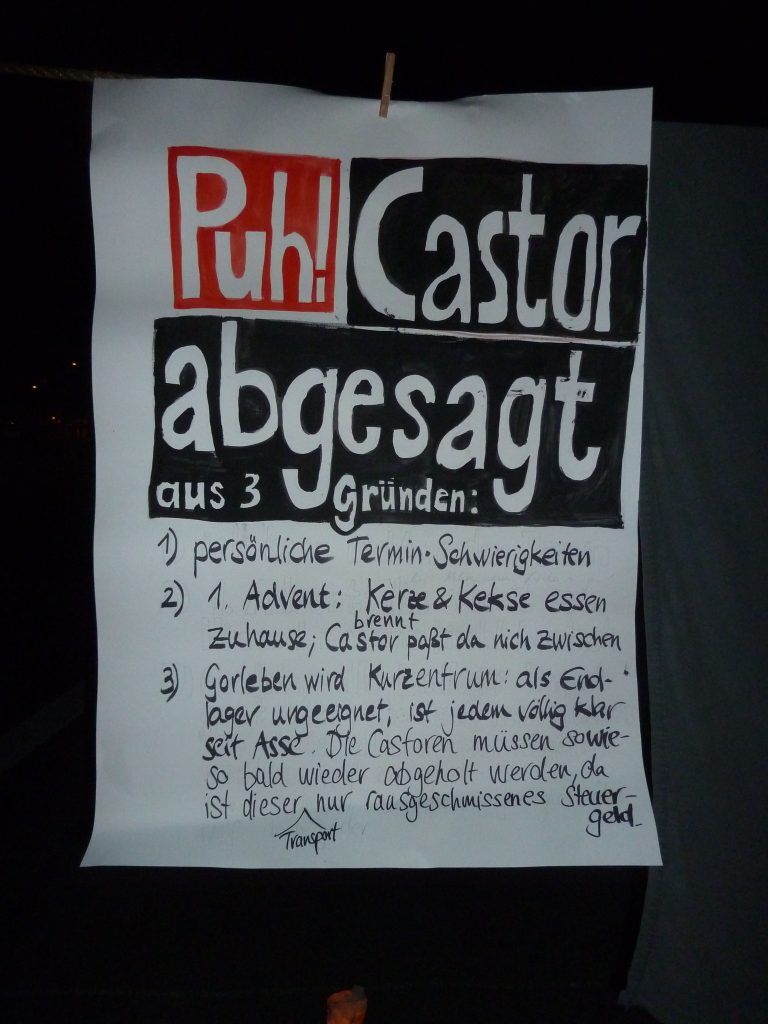 Puh! Castor
abgesagt
aus 3 gründen:
1) persönliche Termin-Schwierigkeiten
2) 1. Advent: Kerze & Kekse essen
brennt
zuhause; Castor paßt da nich zwischen
3) Gorleben wird Kurzentrum: als End-
lager ungeeignet, ist jedem völlig klar
seit Asse. Die Castoren müssen sowie-
so bald wieder abgeholt werden, da
ist dieser nur rausgeschmissenes Steuer-
geld.
Transport